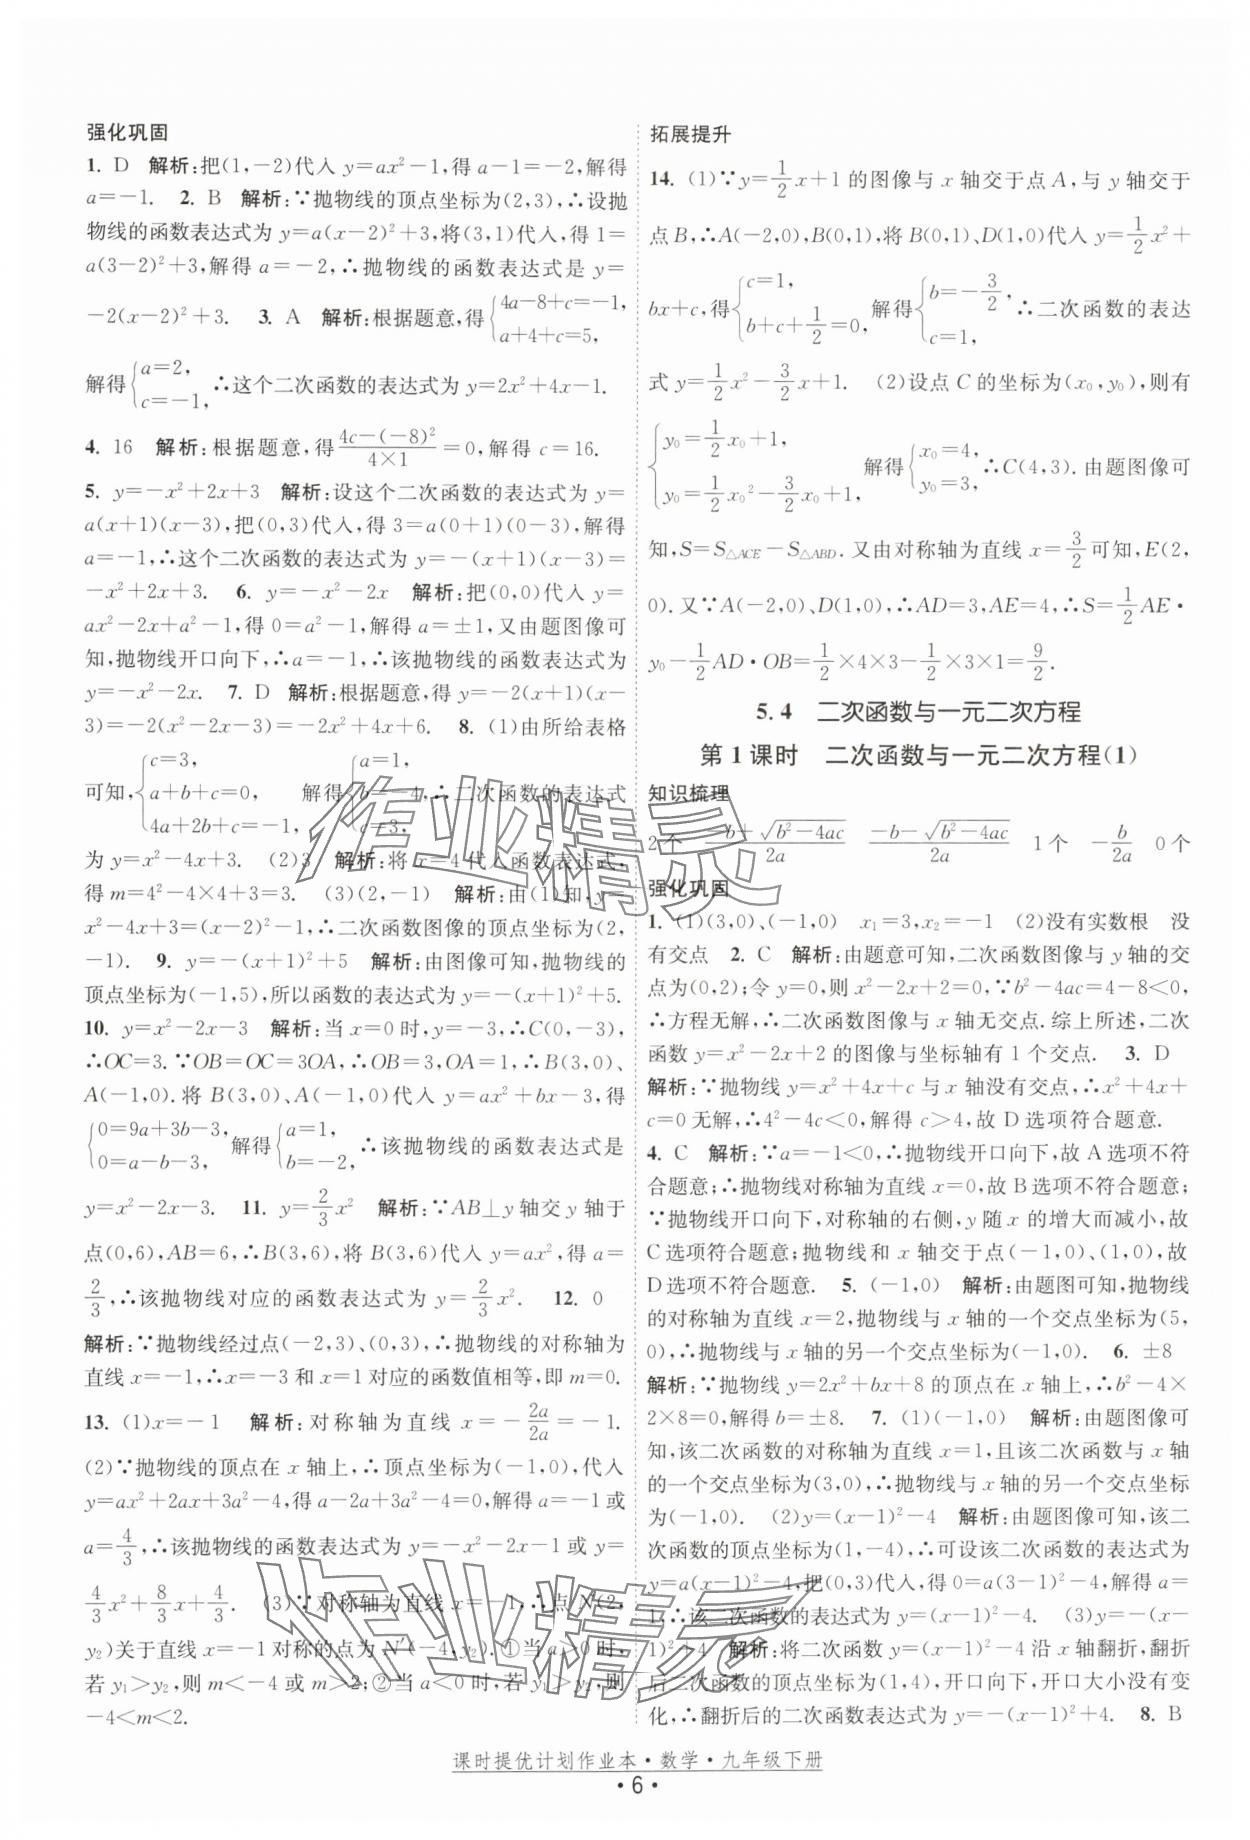 强化巩固
1. D 解析:把(1,-2)代入 y=ax²-1,得 a-1=-2,解得
a=-1. 2. B 解析:∵抛物线的顶点坐标为(2,3),∴设抛
物线的函数表达式为 y=a(x-2)²+3,将(3,1)代入,得 1=
a(3-2)²+3,解得 a=-2,∴抛物线的函数表达式是 y=
-2(x-2)²+3. 3. A 解析:根据题意,得{4a-8+c=-1, a+4+c=5,
解得{a=2, c=-1, ∴这个二次函数的表达式为 y=2x²+4x-1.
4. 16 解析:根据题意,得(4c-(-8)²)/(4×1)=0,解得 c=16.
5. y=-x²+2x+3 解析:设这个二次函数的表达式为 y=
a(x+1)(x-3),把(0,3)代入,得 3=a(0+1)(0-3),解得
a=-1,∴这个二次函数的表达式为 y=-(x+1)(x-3)=
-x²+2x+3. 6. y=-x²-2x 解析:把(0,0)代入 y=
ax²-2x+a²-1,得 0=a²-1,解得 a=±1,又由题图像可
知,抛物线开口向下,∴a=-1,∴该抛物线的函数表达式为
y=-x²-2x. 7. D 解析:根据题意,得 y=-2(x+1)(x-
3)=-2(x²-2x-3)=-2x²+4x+6. 8. (1)由所给表格
可知,{c=3, a+b+c=0, 4a+2b+c=-1, 解得{a=1, b=-4, c=3, ∴二次函数的表达式
为 y=x²-4x+3. (2)3 解析:将 x=4 代入函数表达式,
得 m=4²-4×4+3=3. (3)(2,-1) 解析:由(1)知,y=
x²-4x+3=(x-2)²-1,∴二次函数图像的顶点坐标为(2,
-1). 9. y=-(x+1)²+5 解析:由图像可知,抛物线的
顶点坐标为(-1,5),所以函数的表达式为 y=-(x+1)²+5.
10. y=x²-2x-3 解析:当 x=0 时,y=-3,∴C(0,-3),
∴OC=3.∵OB=OC=3OA,∴OB=3,OA=1,∴B(3,0)、
A(-1,0).将 B(3,0)、A(-1,0)代入 y=ax²+bx-3,得
{0=9a+3b-3, 0=a-b-3, 解得{a=1, b=-2, ∴该抛物线的函数表达式是
y=x²-2x-3. 11. y=2/3x² 解析:∵AB⊥y轴交 y 轴于
点(0,6),AB=6,∴B(3,6),将 B(3,6)代入 y=ax²,得 a=
2/3,∴该抛物线对应的函数表达式为 y=2/3x². 12. 0
解析:∵抛物线经过点(-2,3)、(0,3),∴抛物线的对称轴为
直线 x=-1,∴x=-3 和 x=1 对应的函数值相等,即 m=0.
13. (1)x=-1 解析:对称轴为直线 x=-2a/2a=-1.
(2)∵抛物线的顶点在 x 轴上,∴顶点坐标为(-1,0),代入
y=ax²+2ax+3a²-4,得 a-2a+3a²-4=0,解得 a=-1 或
a=4/3,∴该抛物线的函数表达式为 y=-x²-2x-1 或 y=
4/3x²+8/3x+4/3. (3)∵对称轴为直线 x=-1,∴点 N(2,
y₂)关于直线 x=-1 对称的点为 N′(-4,y₂).①当 a>0 时,
若 y₁>y₂,则 m<-4 或 m>2;②当 a<0 时,若 y₁>y₂,则
-4<m<2.
拓展提升
14. (1)∵y=1/2x+1 的图像与 x 轴交于点 A,与 y 轴交于
点 B,∴A(-2,0),B(0,1),将 B(0,1)、D(1,0)代入 y=1/2x²+
bx+c,得{c=1, b+c+1/2=0, 解得{b=-3/2, c=1, ∴二次函数的表达
式 y=1/2x²-3/2x+1. (2)设点 C 的坐标为(x₀,y₀),则有
{y₀=1/2x₀+1, y₀=1/2x₀²-3/2x₀+1, 解得{x₀=4, y₀=3, ∴C(4,3).由题图像可
知,S=S△ACE-S△ABD.又由对称轴为直线 x=3/2可知,E(2,
0).又∵A(-2,0)、D(1,0),∴AD=3,AE=4,∴S=1/2AE·
y₀-1/2AD·OB=1/2×4×3-1/2×3×1=9/2.
5.4 二次函数与一元二次方程
第 1 课时 二次函数与一元二次方程(1)
知识梳理
2 个 (-b+√(b²-4ac))/2a (-b-√(b²-4ac))/2a 1 个 -b/2a 0 个
强化巩固
1. (1)(3,0)、(-1,0) x₁=3,x₂=-1 (2)没有实数根 没
有交点 2. C 解析:由题意可知,二次函数图像与 y 轴的交
点为(0,2);令 y=0,则 x²-2x+2=0,∵b²-4ac=4-8<0,
∴方程无解,∴二次函数图像与 x 轴无交点.综上所述,二次
函数 y=x²-2x+2 的图像与坐标轴有 1 个交点. 3. D
解析:∵抛物线 y=x²+4x+c 与 x 轴没有交点,∴x²+4x+
c=0 无解,∴4²-4c<0,解得 c>4,故 D 选项符合题意.
4. C 解析:∵a=-1<0,∴抛物线开口向下,故 A 选项不符
合题意;∴抛物线对称轴为直线 x=0,故 B 选项不符合题意;
∵抛物线开口向下,对称轴的右侧,y 随 x 的增大而减小,故
C 选项符合题意;抛物线和 x 轴交于点(-1,0)、(1,0),故
D 选项不符合题意. 5. (-1,0) 解析:由题图可知,抛物线
的对称轴为直线 x=2,抛物线与 x 轴的一个交点坐标为(5,
0),∴抛物线与 x 轴的另一个交点坐标为(-1,0). 6. ±8
解析:∵抛物线 y=2x²+bx+8 的顶点在 x 轴上,∴b²-4×
2×8=0,解得 b=±8. 7. (1)(-1,0) 解析:由题图像可
知,该二次函数的对称轴为直线 x=1,且该二次函数与 x 轴
的一个交点坐标为(3,0),∴抛物线与 x 轴的另一个交点坐标
为(-1,0). (2)y=(x-1)²-4 解析:由题图像可知,该二
次函数的顶点坐标为(1,-4),∴可设该二次函数的表达式为
y=a(x-1)²-4,把(3,0)代入,得 0=a(3-1)²-4,解得 a=
1,∴该二次函数的表达式为 y=(x-1)²-4. (3)y=-(x-
1)²+4 解析:将二次函数 y=(x-1)²-4 沿 x 轴翻折,翻折
后二次函数的顶点坐标为(1,4),开口向下,开口大小没有变
化,∴翻折后的二次函数表达式为 y=-(x-1)²+4. 8. B
作业精灵
作业精灵
课时提优计划作业本·数学·九年级下册
·6·